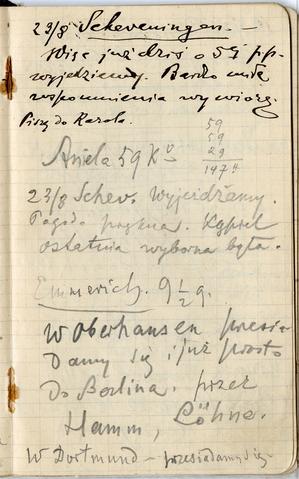 23/8 Scheveningen. —
Więc już dziś o 5½ p.p.
wyjedziemy. Bardzo miłe
wspomnienia wywiozę.
Piszę do Karola.
59
59
29
147
Aniela 59 Ko
23/8 Schev. Wyjeżdżamy.
Pogoda piękna. Kąpiel
ostatnia wyborna była.
Emmerich. 9½ g.
w Oberhausen przesia-
damy się i już prosto
do Berlina. przez
Hamm, Löhne.
w Dortmund – przesiadamy się –